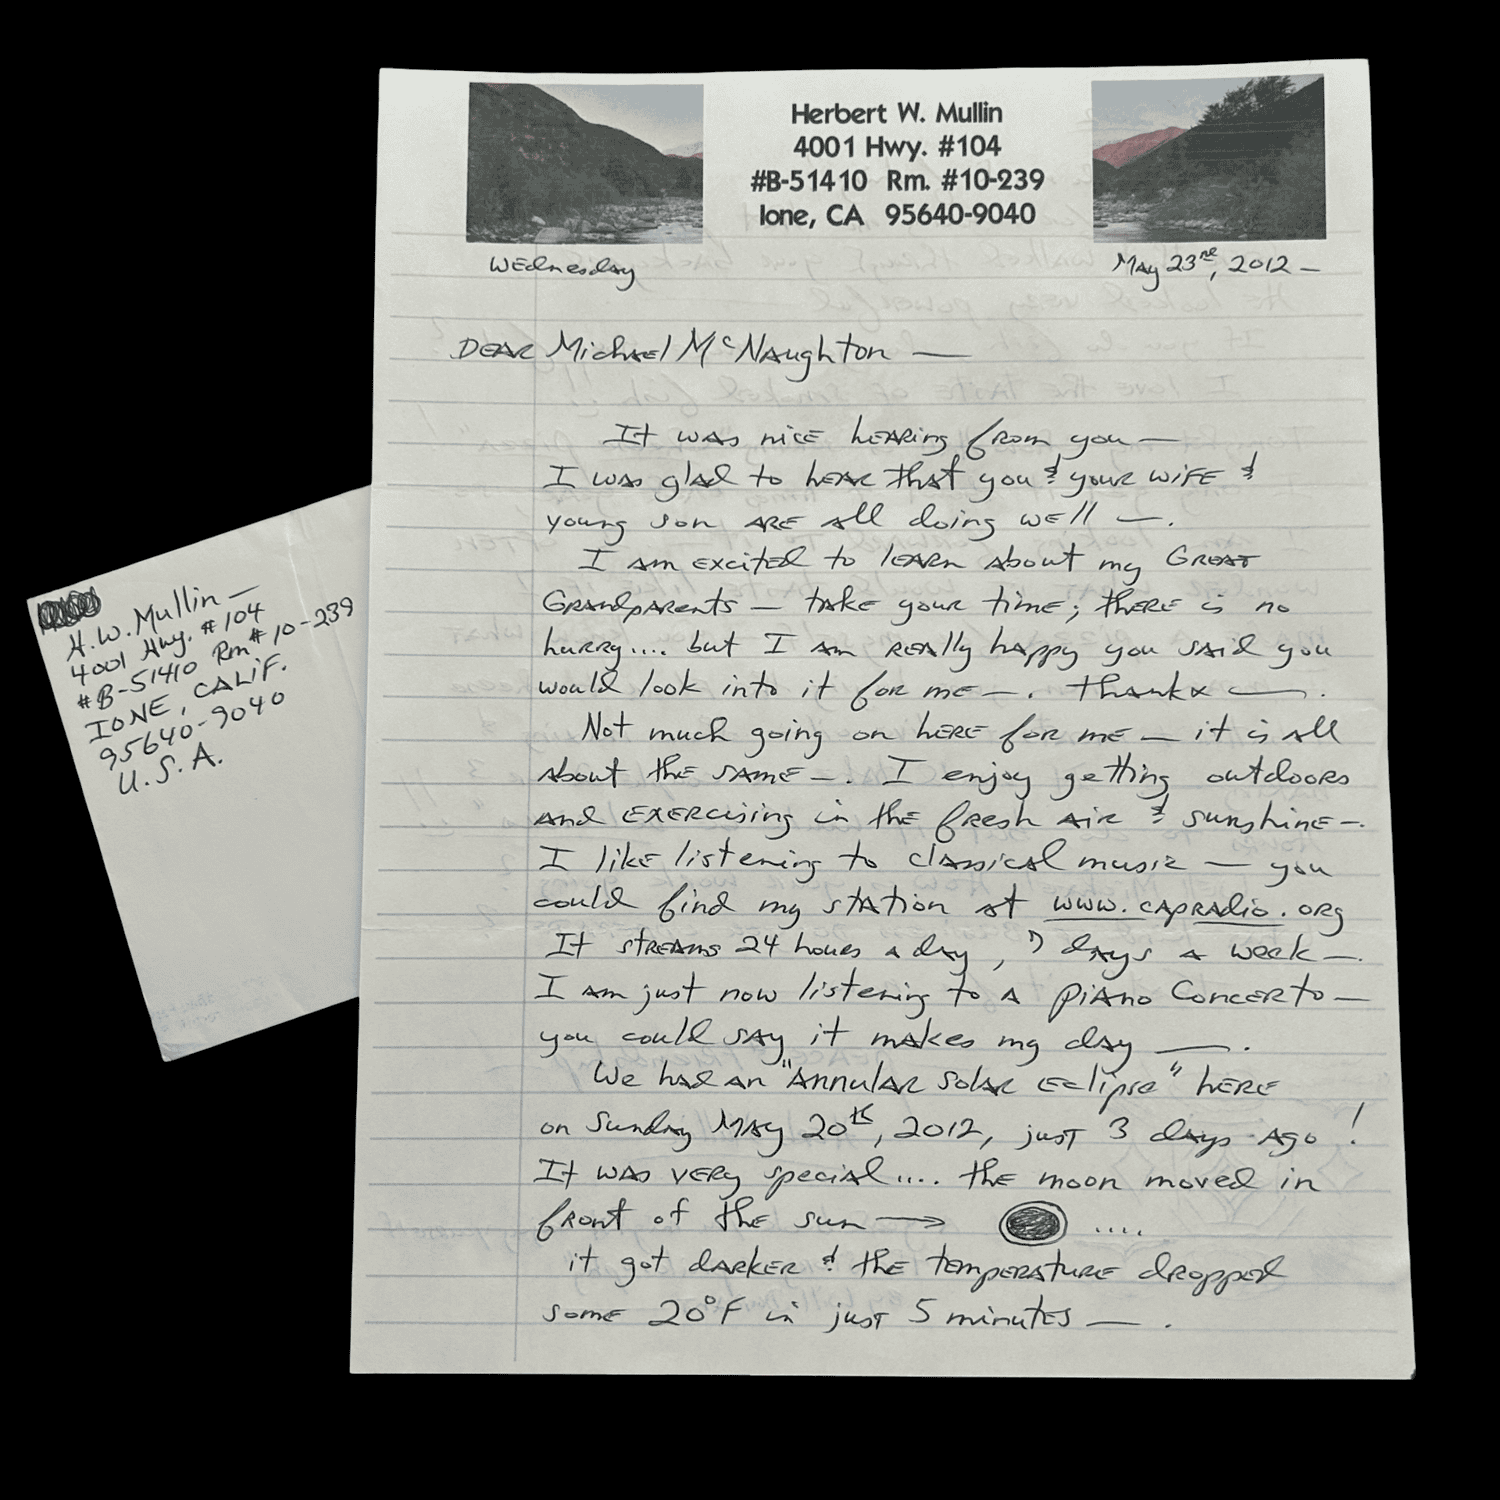 Herbert W. Mullin
4001 Hwy. #104
#B-51410 Rm. #10-239
Ione, CA 95640-9040
Wednesday
May 23rd, 2012 —
Dear Michael McNaughton —
It was nice hearing from you —
I was glad to hear that you & your wife &
young son are all doing well —.
I am excited to learn about my Great
Grandparents — take your time; there is no
hurry.... but I am really happy you said you
would look into it for me —. Thanks —.
Not much going on here for me — it is all
about the same —. I enjoy getting outdoors
and exercising in the fresh air & sunshine —.
I like listening to classical music — you
could find my station at www.capradio.org
It streams 24 hours a day, 7 days a week —.
I am just now listening to a Piano Concerto —
you could say it makes my day —.
We had an "Annular Solar Eclipse" here
on Sunday May 20th, 2012, just 3 days ago !
It was very special.... the moon moved in
front of the sun → ....
it got darker & the temperature dropped
some 20°F in just 5 minutes —.
H.W. Mullin —
4001 Hwy. #104
#B-51410 Rm# 10-239
IONE, CALIF.
95640-9040
U.S.A.